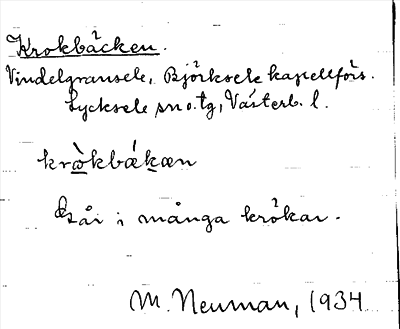 Krokbäcken.
Vindelgransele, Björksele kapellförs.
Lycksele sn o. tg, Västerb. l.
krò̱kbǽḵæn
Går i många krökar.
M. Neuman, 1934